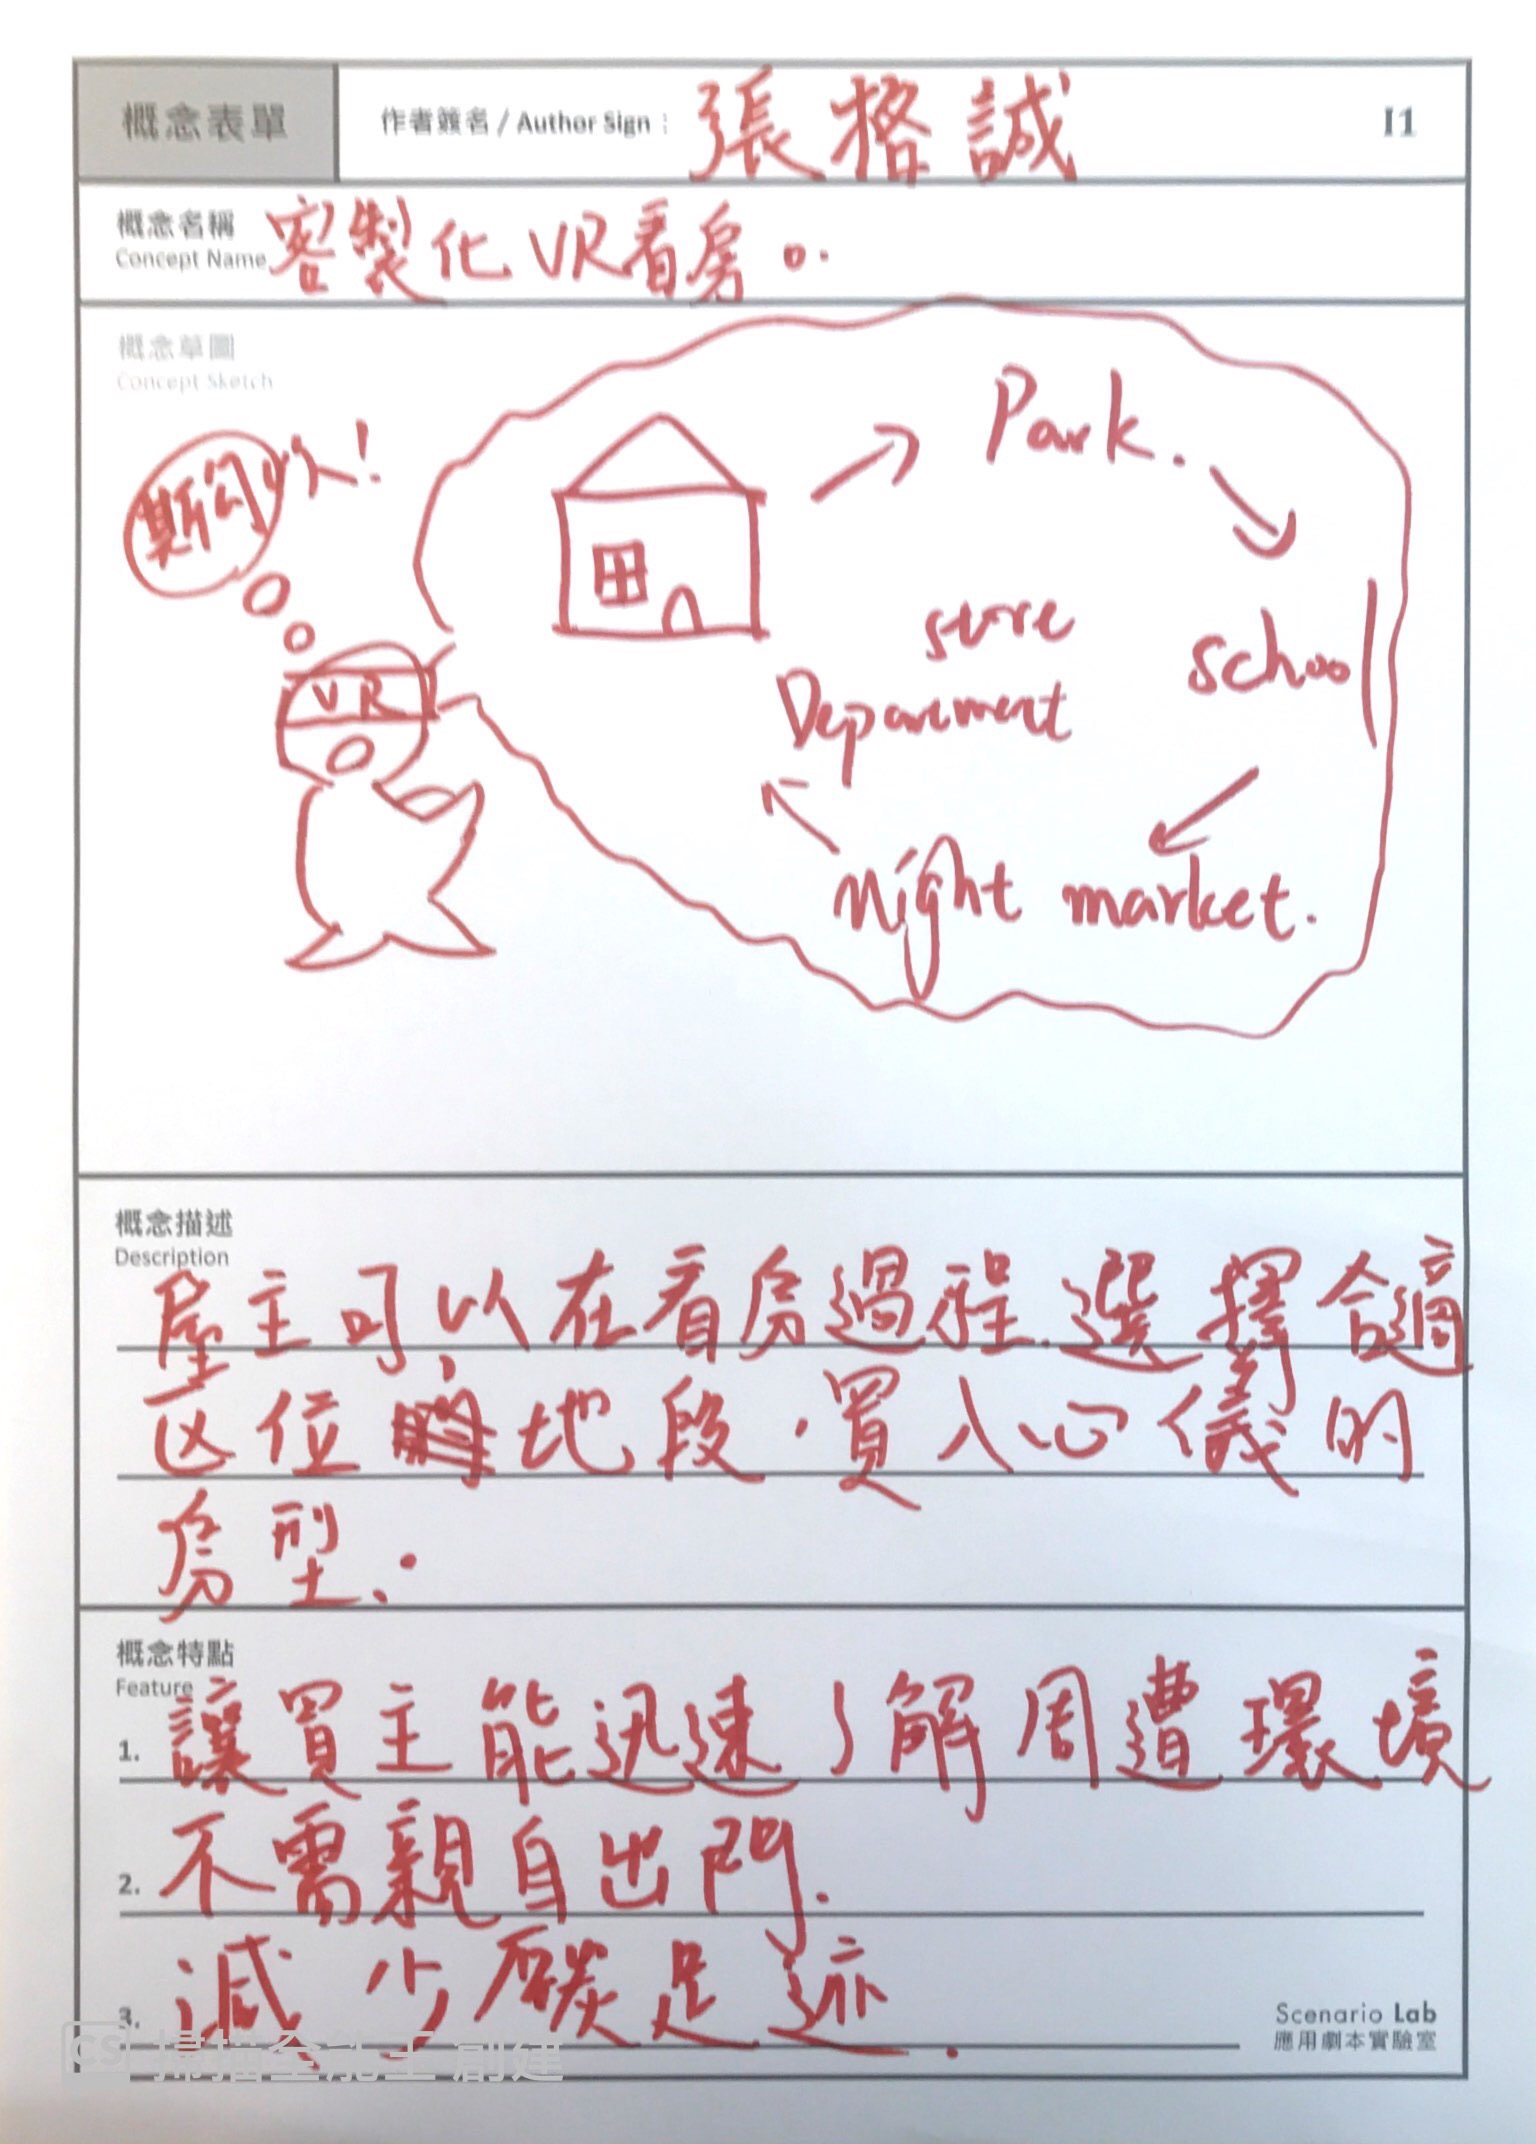 概念表單
作者簽名 / Author Sign： 張格誠
I1
概念名稱
Concept Name 客製化VR看房。
概念草圖
Concept Sketch
斯勾以！
VR
Park.
school
store
Department
night market.
概念描述
Description
屋主可以在看房過程.選擇合適
区位地段，買入心儀的
房型.
概念特點
Feature
1. 讓買主能迅速了解周遭環境
2. 不需親自出門.
3. 減少碳足迹.
Scenario Lab
應用劇本實驗室
CS 掃描全能王 創建